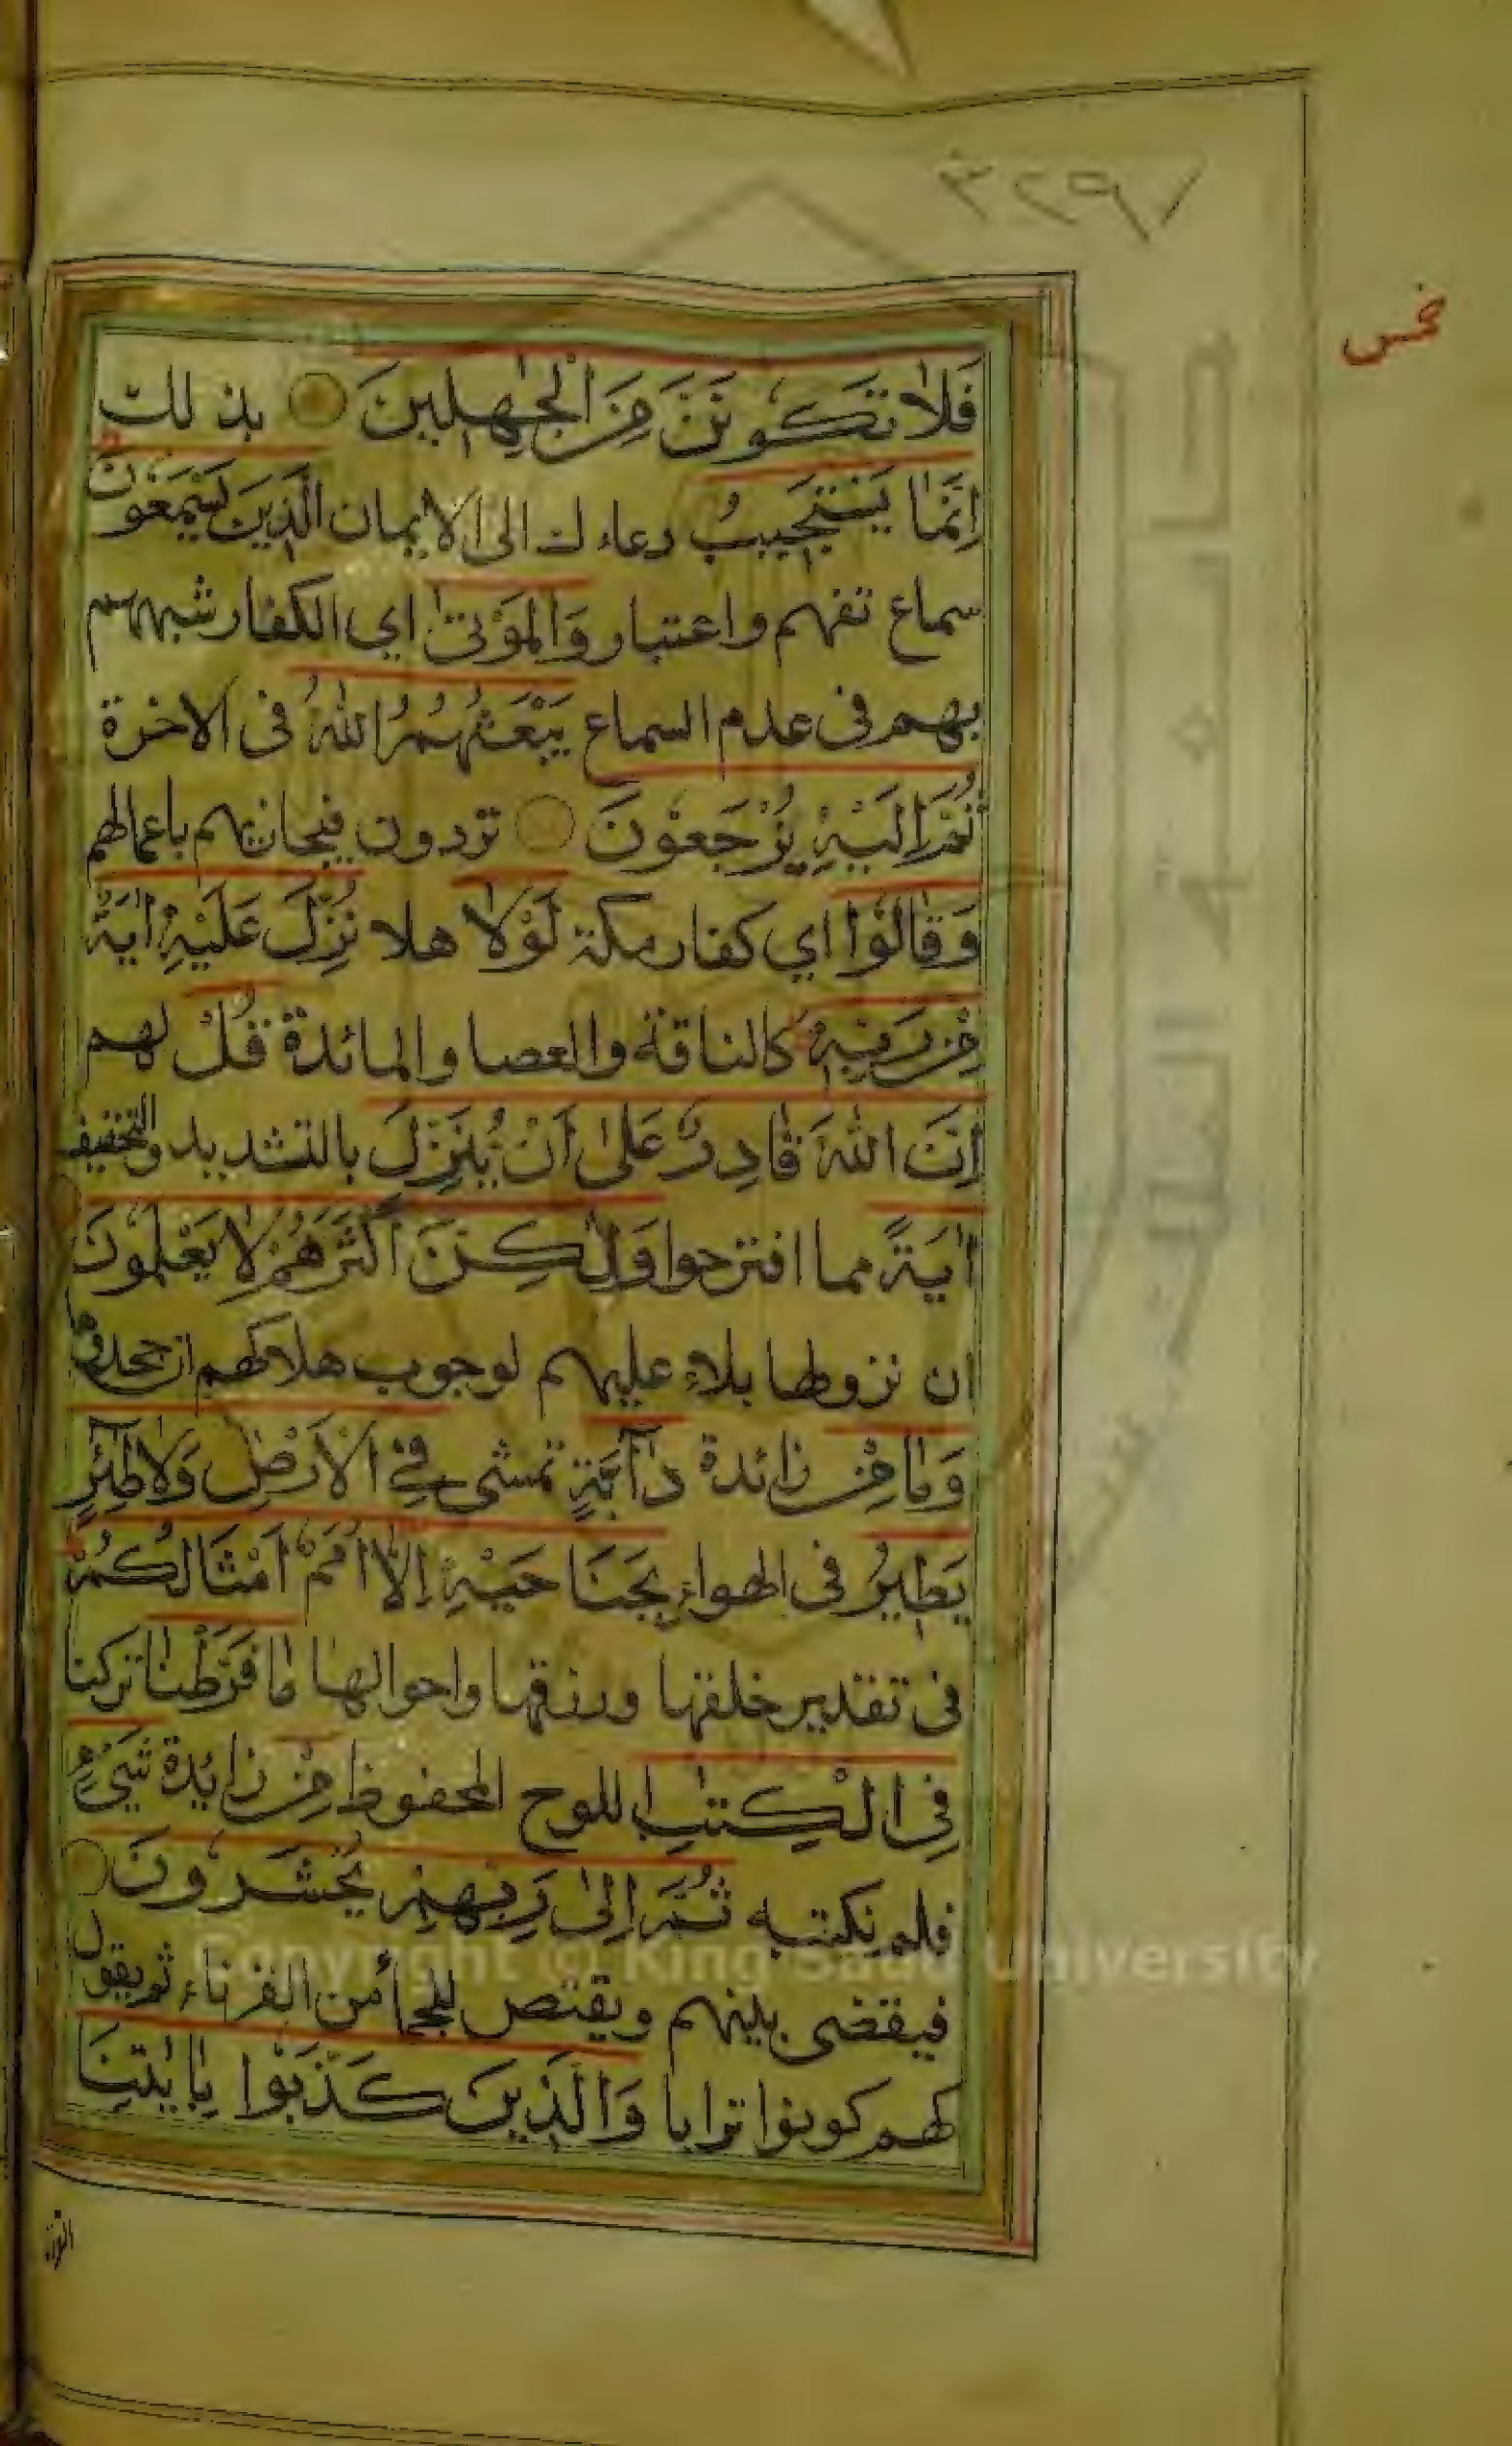 ٣٢٩٧
خمس
فَلَا تَكُونَنَّ مِنَ الْجٰهِلِينَ بذلك
اِنَّمٰا يَسْتَجِيبُ دعاءك الى الايمان الَّذِينَ يَسْمَعُونَ
سماع تفهم واعتبار وَالْمَوْتىٰ اي الكفار شبههم
بهم في عدم السماع يَبْعَثُهُمُ اللّٰهُ في الاخرة
ثُمَّ اِلَيْهِ يُرْجَعُونَ تردون فيجازيهم باعمالهم
وَقٰالُوا اي كفار مكة لَوْلٰا هلا نُزِّلَ عَلَيْهِ اٰيَةٌ
مِنْ رَبِّهِ كالناقة والعصا والمائدة قُلْ لهم
اِنَّ اللّٰهَ قٰادِرٌ عَلىٰ اَنْ يُنَزِّلَ بالتشديد والتخفيف
اٰيَةً مما اقترحوا وَلٰكِنَّ اَكْثَرَهُمْ لٰا يَعْلَمُونَ
ان نزولها بلاء عليهم لوجوب هلاكهم ان جحدوها
وَمٰا مِنْ زائدة دٰآبَّةٍ تمشي فِي الْاَرْضِ وَلٰا طٰئِرٍ
يَطِيرُ في الهواء بِجَنَاحَيْهِ اِلّٰا اُمَمٌ اَمْثَالُكُمْ
في تقدير خلقها ورزقها واحوالها مٰا فَرَّطْنٰا تركنا
فِي الْكِتٰبِ اللوح المحفوظ مِنْ زايدة شَيْءٍ
فلم نكتبه ثُمَّ اِلىٰ رَبِّهِمْ يُحْشَرُونَ
فيقضى بينهم ويقتص للجمأ من القرناء ثم يقول
لهم كونوا ترابا وَالَّذِينَ كَذَّبُوا بِاٰيٰتِنَا
Copyright © King Saud University